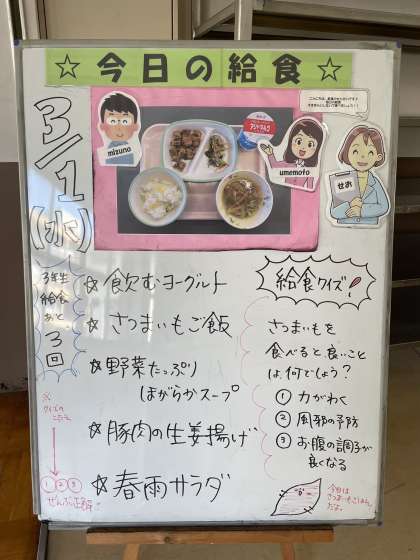 ☆今日の給食☆
3/1(水)
mizuno
umemoto
せお
3年生
給食
あと
3回
☆飲むヨーグルト
☆さつまいもご飯
☆野菜たっぷり
ほがらかスープ
☆豚肉の生姜揚げ
☆春雨サラダ
給食クイズ!
さつまいもを
食べると良いこと
は、何でしょう?
①力がわく
②風邪の予防
③お腹の調子が
良くなる
※
クイズの
こたえ
①②③
ぜんぶ正解!
今日は
さつまいもごはん
だよ。